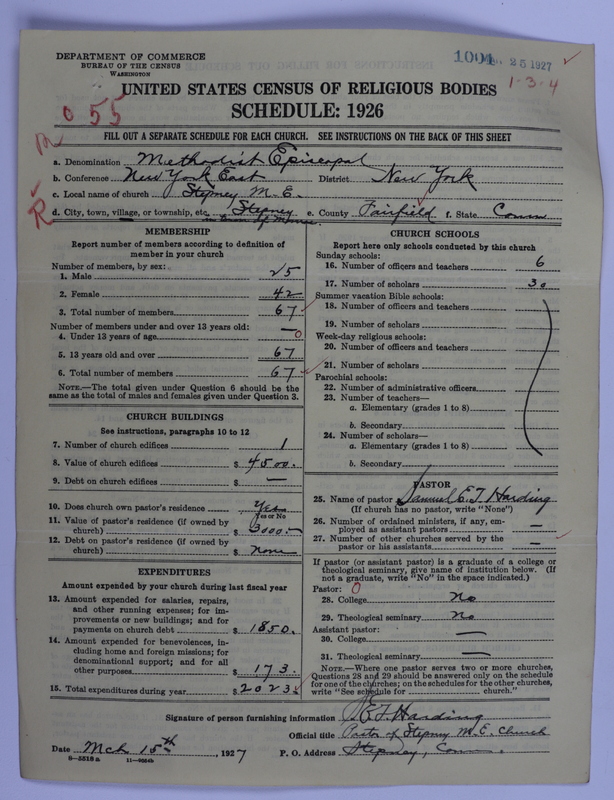 DEPARTMENT OF COMMERCE
BUREAU OF THE CENSUS
WASHINGTON
1004 25 1927
1-3-4
UNITED STATES CENSUS OF RELIGIOUS BODIES
SCHEDULE: 1926
055
FILL OUT A SEPARATE SCHEDULE FOR EACH CHURCH. SEE INSTRUCTIONS ON THE BACK OF THIS SHEET
a. Denomination Methodist Episcopal
b. Conference New York East District New York
c. Local name of church Stepney M.E.
d. City, town, village, or township, etc. Stepney e. County Fairfield f. State Conn
in town of Monroe
R
MEMBERSHIP
Report number of members according to definition of
member in your church
Number of members, by sex:
1. Male 25
2. Female 42
3. Total number of members 67
Number of members under and over 13 years old:
4. Under 13 years of age — 0
5. 13 years old and over 67
6. Total number of members 67
NOTE.—The total given under Question 6 should be
same as the total of males and females given under Question 3.
CHURCH BUILDINGS
See instructions, paragraphs 10 to 12
7. Number of church edifices 1
8. Value of church edifices $ 4500.
9. Debt on church edifices $ —
10. Does church own pastor's residence Yes
Yes or No
11. Value of pastor's residence (if owned by
church) $ 3000.—
12. Debt on pastor's residence (if owned by
church) $ none
EXPENDITURES
Amount expended by your church during last fiscal year
13. Amount expended for salaries, repairs,
and other running expenses; for im-
provements or new buildings; and for
payments on church debt $ 1850.
14. Amount expended for benevolences, in-
cluding home and foreign missions; for
denominational support; and for all
other purposes $ 173.
15. Total expenditures during year $ 2023.
CHURCH SCHOOLS
Report here only schools conducted by this church
Sunday schools:
16. Number of officers and teachers 6
17. Number of scholars 30
Summer vacation Bible schools:
18. Number of officers and teachers
19. Number of scholars
Week-day religious schools:
20. Number of officers and teachers
21. Number of scholars
Parochial schools:
22. Number of administrative officers
23. Number of teachers—
a. Elementary (grades 1 to 8)
b. Secondary
24. Number of scholars—
a. Elementary (grades 1 to 8)
b. Secondary
PASTOR
25. Name of pastor Samuel E. T. Harding
(If church has no pastor, write "None")
26. Number of ordained ministers, if any, em-
ployed as assistant pastors —
27. Number of other churches served by the
pastor or his assistants —
If pastor (or assistant pastor) is a graduate of a college or
theological seminary, give name of institution below. (If
not a graduate, write "No" in the space indicated.)
Pastor: 0
28. College No
29. Theological seminary No
Assistant pastor:
30. College —
31. Theological seminary —
NOTE.—Where one pastor serves two or more churches,
Questions 28 and 29 should be answered only on the schedule
for one of the churches; on the schedules for the other churches,
write "See schedule for church."
Signature of person furnishing information S. E. T. Harding
Official title Pastor of Stepney M.E. Church
Date Mch 15th 1927 P. O. Address Stepney, Conn.
8—5510 a